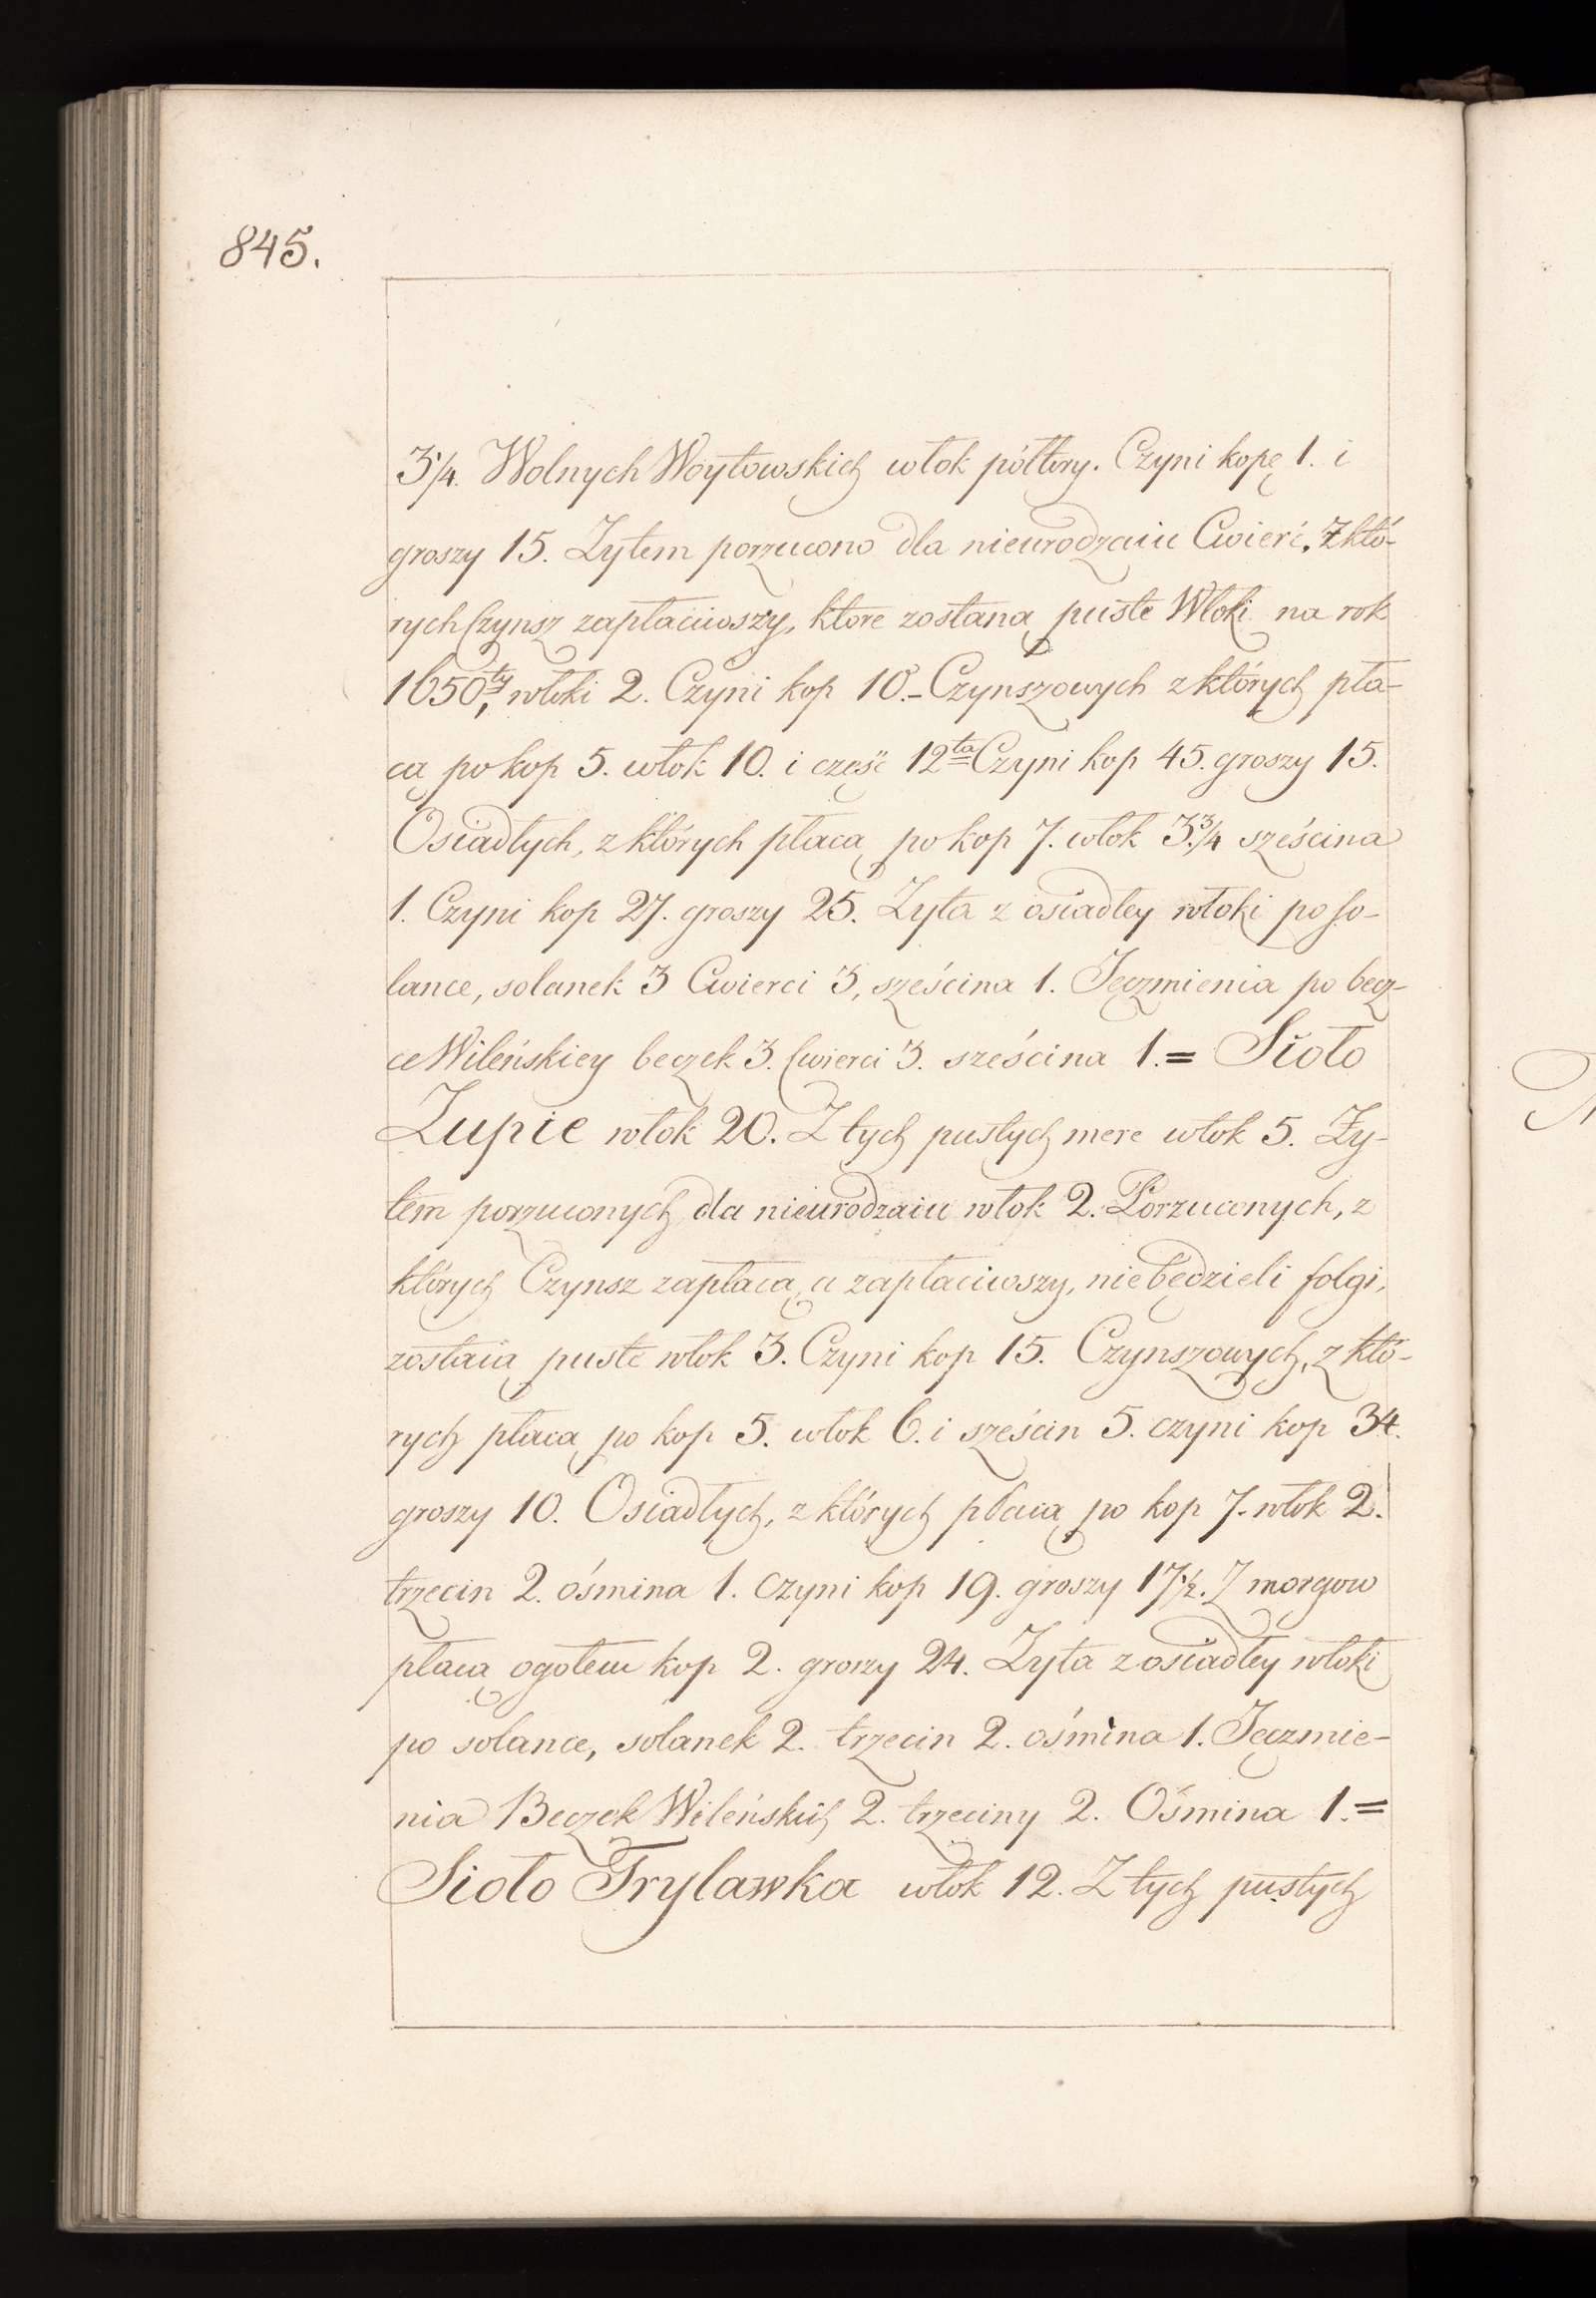 845.
3 1/4. Wolnych Woytowskich włok półtory. Czyni kopę 1. i
groszy 15. Zytem porzucono dla nieurodzaiu Cwierć. Z któ-
rych Czynsz zapłaciwszy, które zostaną puste Włoki na rok
1650ty, włoki 2. Czyni kop 10. - Czynszowych z których pła-
cą po kop 5. włok 10. i część 12ta Czyni kop 45. groszy 15.
Osiadłych, z których płacą po kop 7. włok 3. 3/4 sześcina
1. Czyni kop 27. groszy 25. Zyta z osiadłey włoki po so-
lance, solanek 3 Cwierci 3, sześcina 1. Jęczmienia po becz-
ce Wileńskiey beczek 3. Cwierci 3. sześcina 1. = Sioło
Zupie włok 20. Z tych pustych mere włok 5. Zy-
tem porzuconych dla nieurodzaiu włok 2. Porzuconych, z
których Czynsz zapłacą, a zapłaciwszy, nie będzieli folgi,
zostaią puste włok 3. Czyni kop 15. Czynszowych, z któ-
rych płacą po kop 5. włok 6. i sześcin 5. czyni kop 34.
groszy 10. Osiadłych, z których płacą po kop 7. włok 2.
trzecin 2. ośmina 1. czyni kop 19. groszy 17 1/2. Z morgow
płacą ogołem kop 2. groszy 24. Zyta z osiadłey włoki
po solance, solanek 2. trzecin 2. ośmina 1. Jęczmie-
nia Beczek Wileńskich 2. trzeciny 2. Ośmina 1. =
Sioło Trylawka włok 12. Z tych pustych